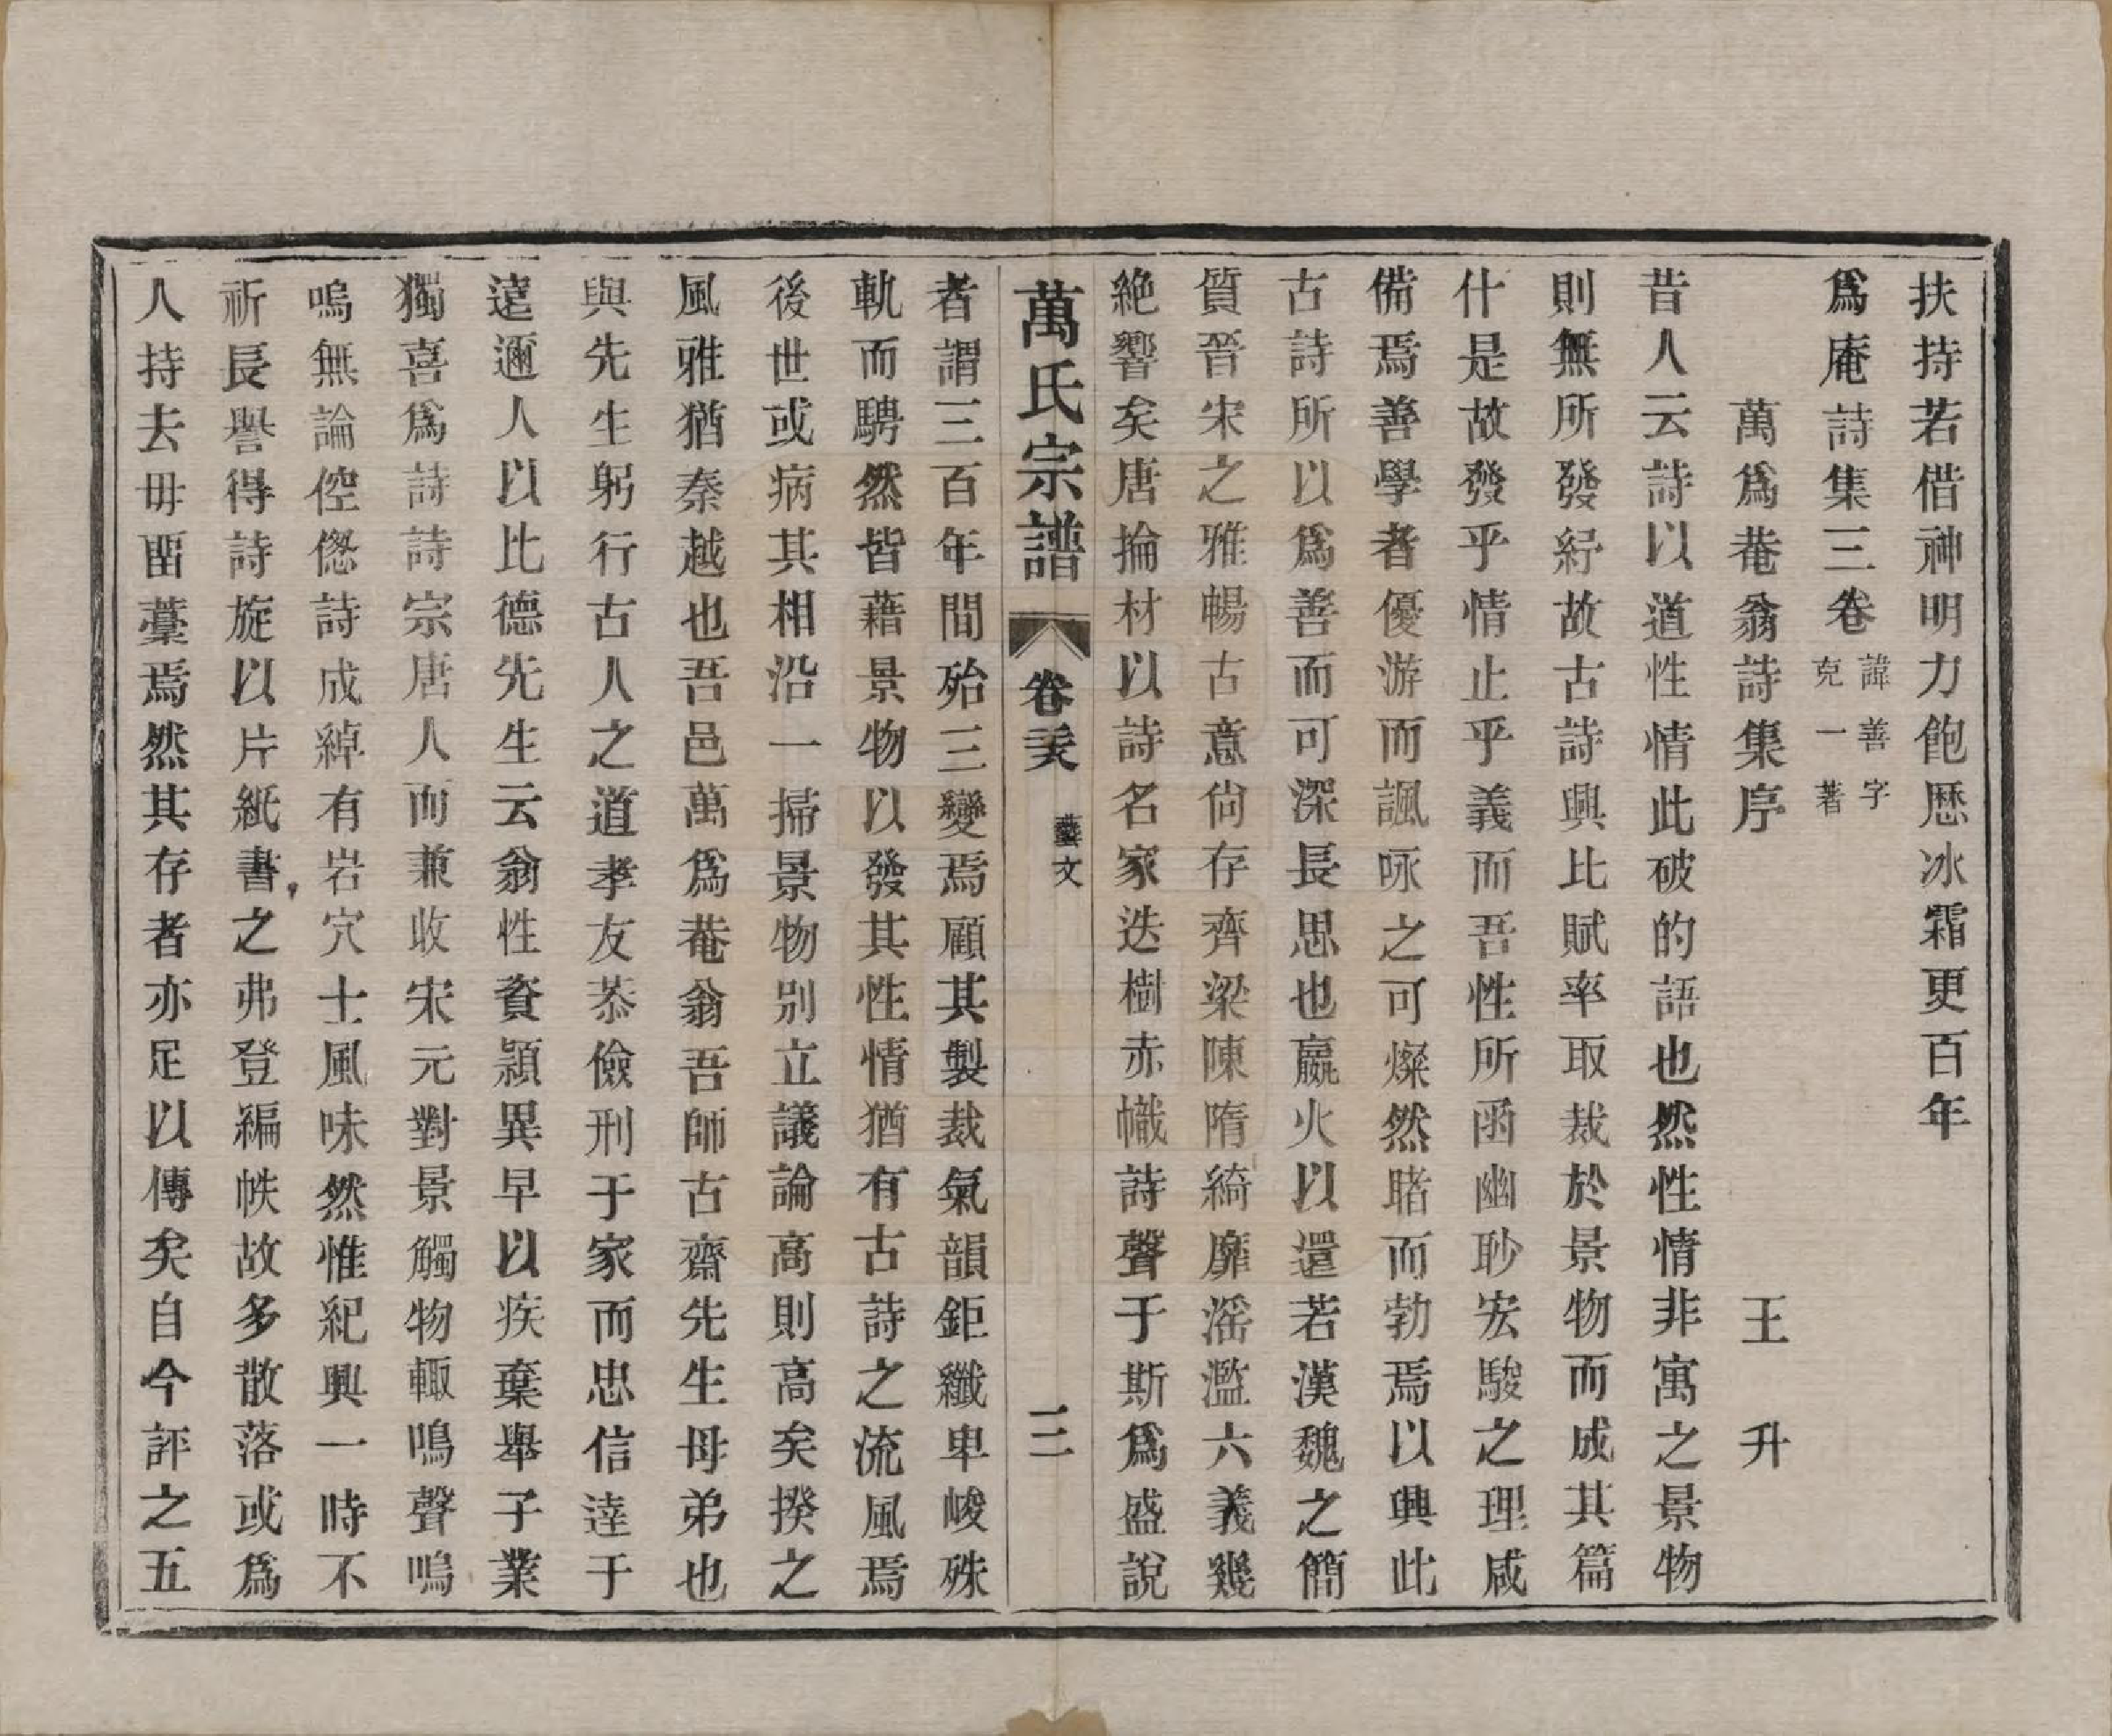 扶持若偕神明力飽歷冰霜更百年
爲庵詩集三卷 諱善字克一著
萬爲菴翁詩集序 王升
昔人云詩以道性情此破的語也然性情非寓之景物
則無所發紓故古詩興比賦率取裁於景物而成其篇
什是故發乎情止乎義而吾性所函幽眇宏駿之理咸
備焉善學者優游而諷咏之可燦然睹而勃焉以興此
古詩所以爲善而可深長思也嬴火以還若漢魏之簡
質晉宋之雅暢古意尙存齊梁陳隋綺靡滛濫六義幾
絶響矣唐掄材以詩名家迭樹赤幟詩聲于斯爲盛說
萬氏宗譜 卷 藝文 三
者謂三百年間殆三變焉顧其製裁氣韻鉅纖卑峻殊
軌而騁然皆藉景物以發其性情猶有古詩之流風焉
後世或病其相沿一掃景物別立議論高則高矣揆之
風雅猶秦越也吾邑萬爲菴翁吾師古齋先生母弟也
與先生躬行古人之道孝友恭儉刑于家而忠信達于
遠邇人以比德先生云翁性資頴異早以疾棄舉子業
獨喜爲詩詩宗唐人而兼收宋元對景觸物輙鳴聲嗚
嗚無論倥偬詩成綽有岩穴士風味然惟紀興一時不
祈長譽得詩旋以片紙書之弗登編帙故多散落或爲
人持去毋畱藁焉然其存者亦足以傳矣自今評之五